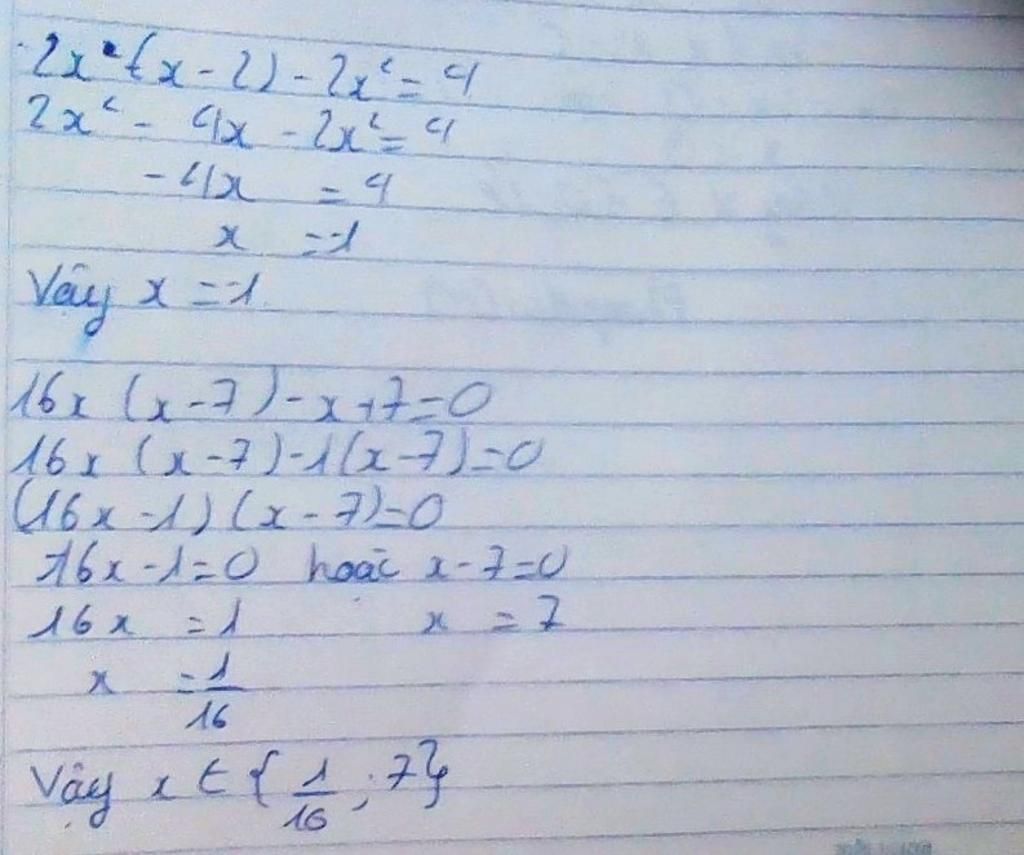 2x(x-2)-2x²=4
2x²-4x-2x²=4
-4x=4
x=-1
Vậy x=-1
16x(x-7)-x+7=0
16x(x-7)-1(x-7)=0
(16x-1)(x-7)=0
16x-1=0 hoặc x-7=0
16x=1 x=7
x=1/16
Vậy x ∈ {1/16; 7}